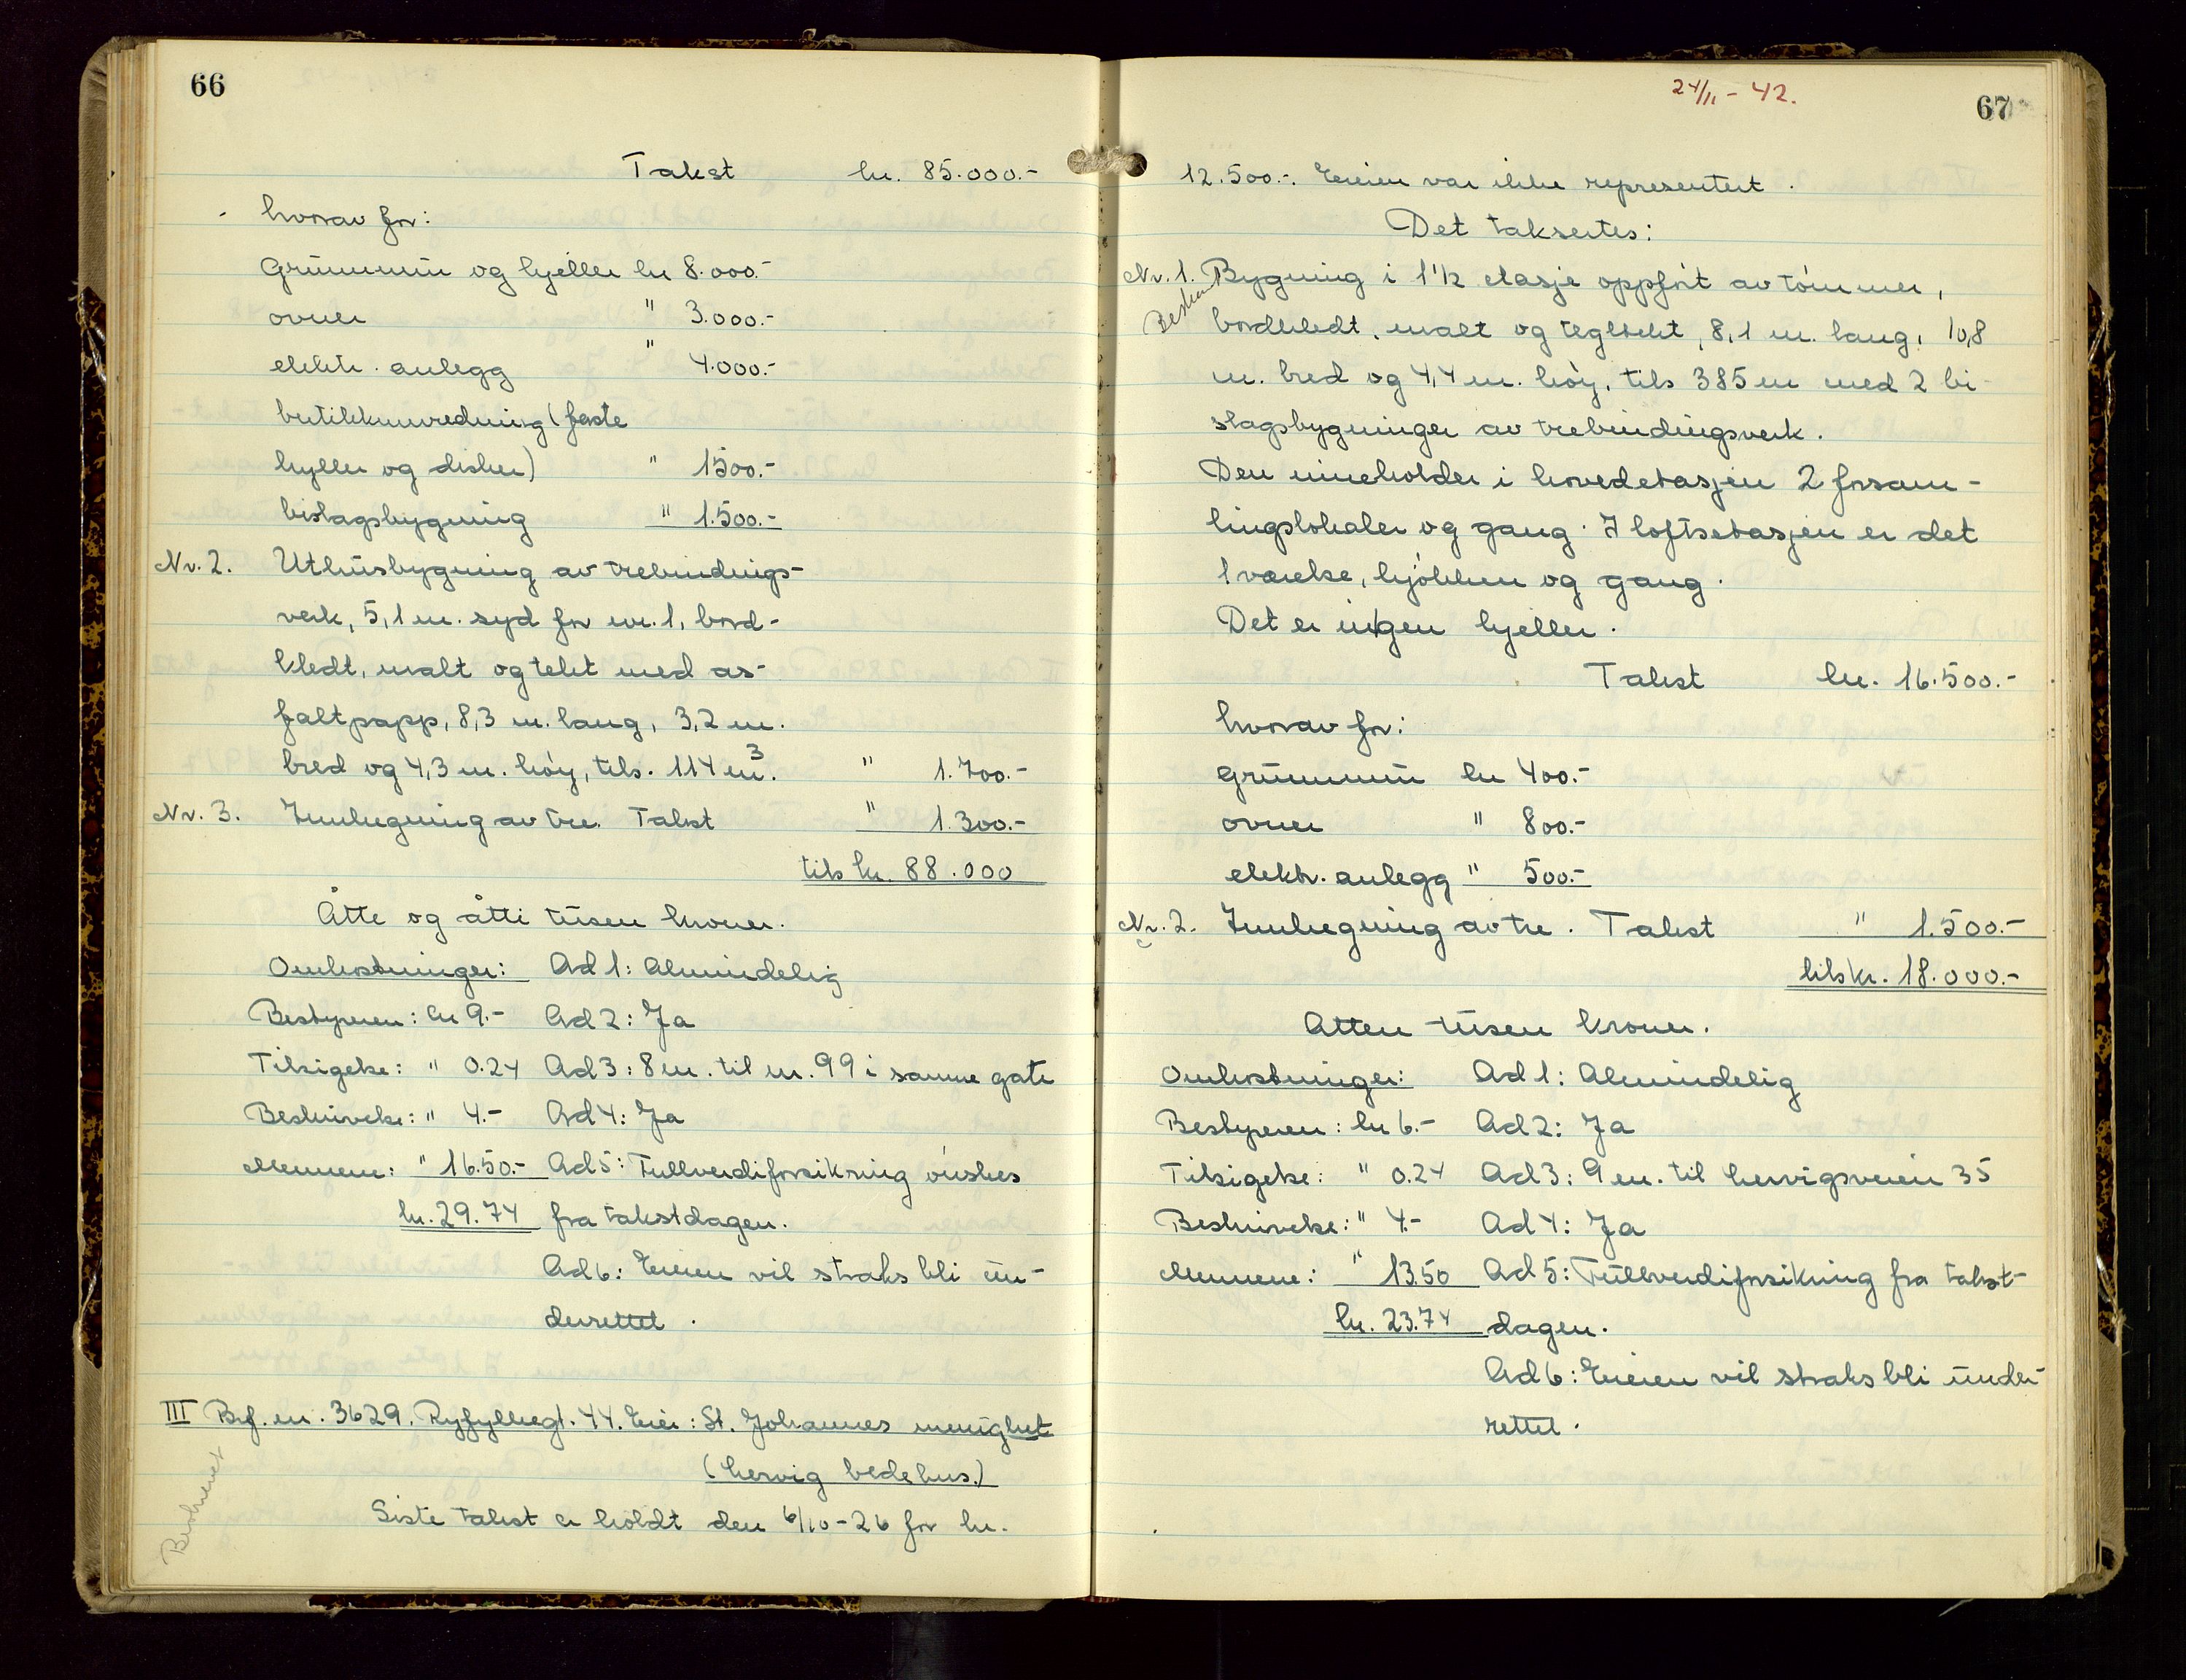 66
Takst kr. 85.000.-
hvorav for:
Grunnmur og kjeller kr 8.000.-
ovner " 3.000.-
elektr. anlegg " 4.000.-
butikkinnredning (faste
hyller og disker) " 1500.-
bislagsbygning " 1.500.-
Nr. 2. Uthusbygning av trebindings-
verk, 5,1 m. syd for nr. 1, bord-
kledt, malt og tekt med as-
faltpapp, 8,3 m. lang, 3,2 m.
bred og 4,3 m. høy, tils. 114 m³. " 1.700.-
Nr. 3. Innhegning av tre. Takst " 1.300.-
tils kr. 88.000
Åtte og åtti tusen kroner.
Omkostninger: Ad 1: Almindelig
Bestyreren: kr 9.- Ad 2: Ja
Tilsigelse: " 0.24 Ad 3: 8 m. til nr. 99 i samme gate
Beskrivelse: " 4.- Ad 4: Ja
Mennene: " 16.50.- Ad 5: Fullverdiforsikring ønskes
kr. 29.74 fra takstdagen.
Ad 6: Eieren vil straks bli un-
derrettet.
III Brf. nr. 3629. Ryfylkegt. 44. Eier: St. Johannes menighet
(Kervig bedehus.)
Siste takst er holdt den 6/10-26 for kr.
Beskrevet
24/11-42.
67
12.500.-. Eieren var ikke representert.
Det takseres:
Nr. 1. Bygning i 1 1/2 etasje oppført av tømmer,
bordkledt, malt og tegltekt, 8,1 m. lang, 10,8
m. bred og 4,4 m. høy, tils 385 m med 2 bi-
slagsbygninger av trebindingsverk.
Den inneholder i hovedetasjen 2 forsam-
lingslokaler og gang. I loftsetasjen er det
1 værelse, kjøkken og gang.
Det er ingen kjeller.
Takst kr. 16.500.-
hvorav for:
grunnmur kr 400.-
ovner " 800.-
elektr. anlegg " 500.-
Nr. 2. Innhegning av tre. Takst " 1.500.-
tils kr. 18.000.-
Atten tusen kroner.
Omkostninger: Ad 1: Almindelig
Bestyreren: kr 6.- Ad 2: Ja
Tilsigelse: " 0.24 Ad 3: 9 m. til Kervigsveien 35
Beskrivelse: " 4.- Ad 4: Ja
Mennene: " 13.50 Ad 5: Fullverdiforsikring fra takst-
kr. 23.74 dagen.
Ad 6: Eieren vil straks bli under-
rettet.